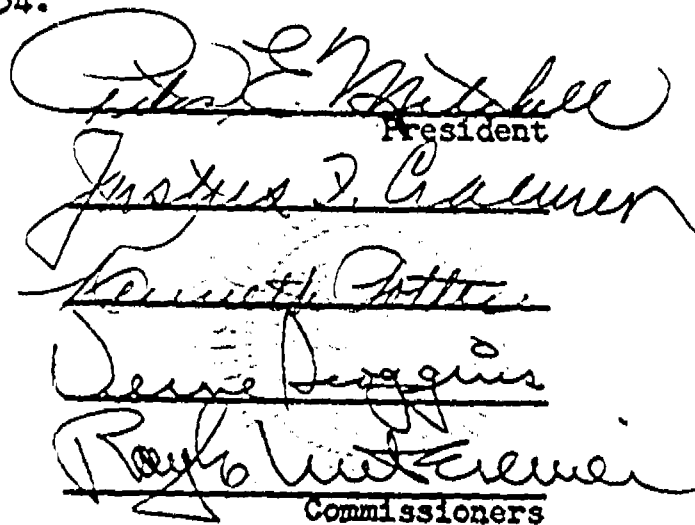 54.
Peter E. Mitchell
President
Justus F. Craemer
Kenneth Potter
Verne Scoggins
Ray E. Untereiner
Commissioners